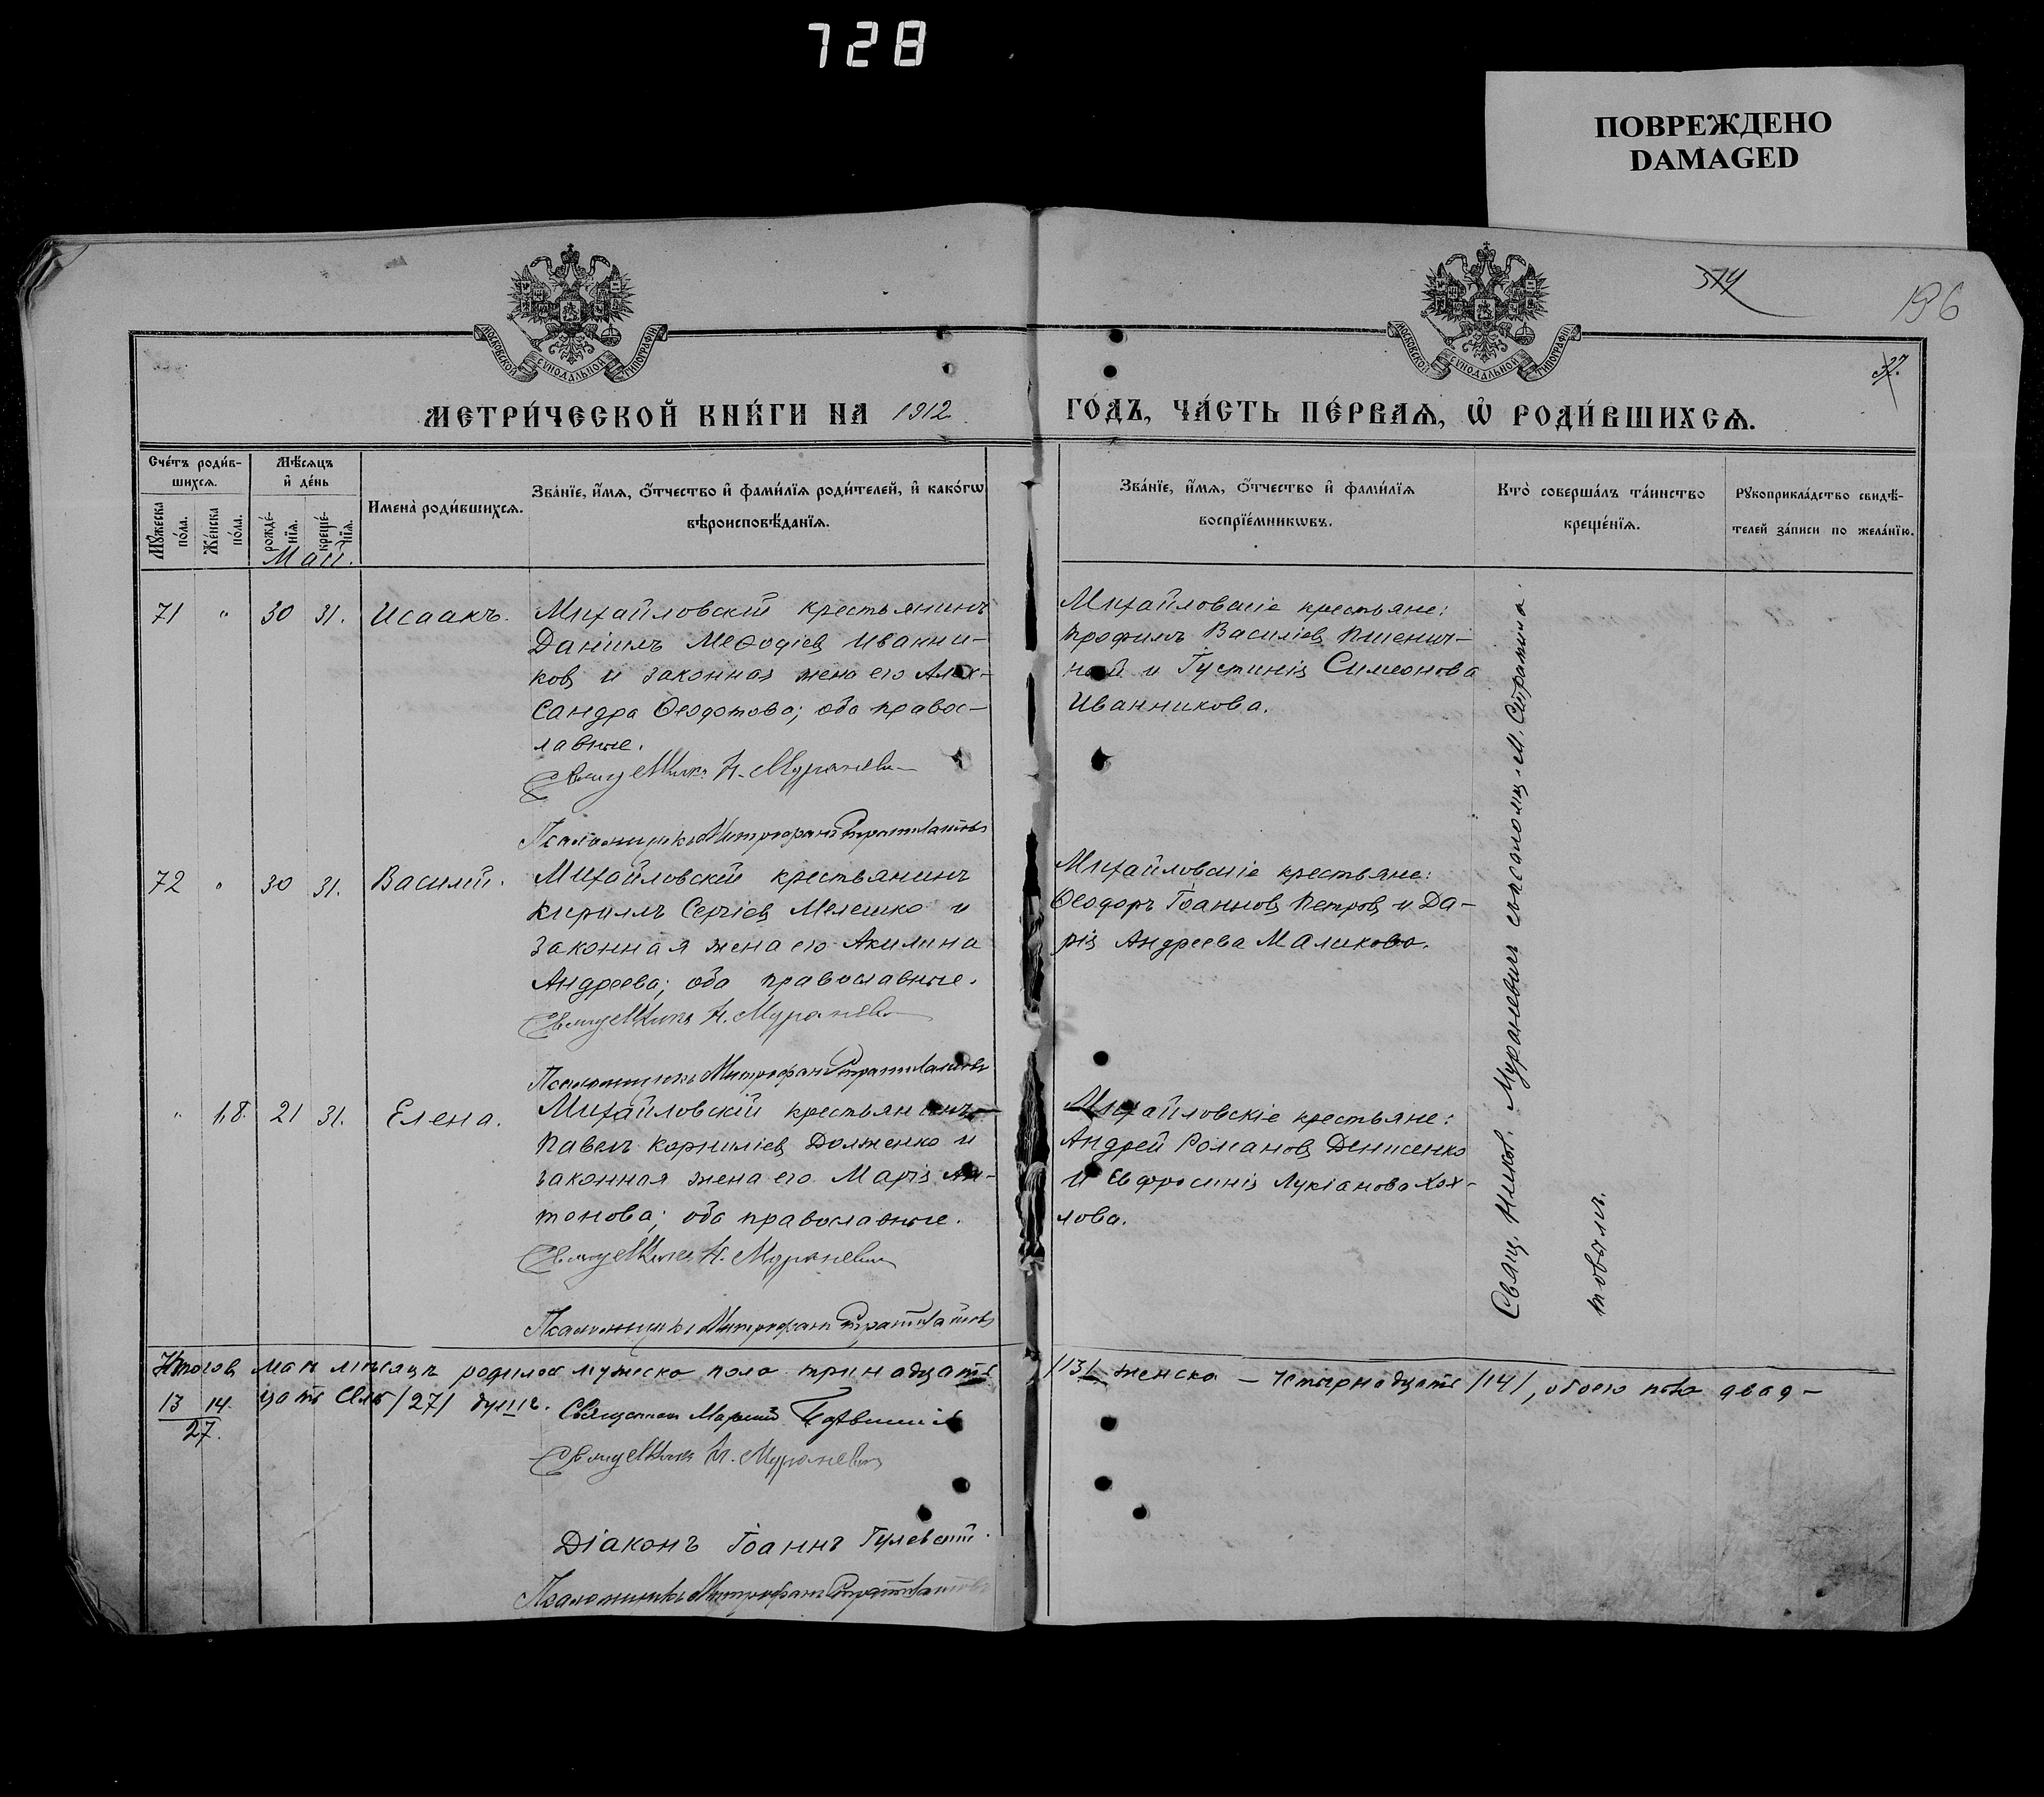 728
ПОВРЕЖДЕНО
DAMAGED
374
196
37.
МОСКОВСКОЙ СѴНОДАЛЬНОЙ ТИПОГРАФІИ
МОСКОВСКОЙ СѴНОДАЛЬНОЙ ТИПОГРАФІИ
МЕТРИ́ЧЕСКОЙ КНИ́ГИ НА 1912 ГО́ДЪ, ЧА́СТЬ ПЕ́РВАѦ, Ѡ҆ РОДИ́ВШИХСѦ.
Сче́тъ роди́в-
шихсѧ.
Мꙋ́жеска по́ла.
Же́нска по́ла.
Мѣ́сѧцъ
и҆ де́нь
рожде́-
нїѧ.
креще́-
нїѧ.
Имена̀ роди́вшихсѧ.
Зва́нїе, и҆́мѧ, ѻ҆́тчество и҆ фами́лїѧ роди́телей, и҆ како́гѡ
вѣроисповѣ́данїѧ.
Зва́нїе, и҆́мѧ, ѻ҆́тчество и҆ фами́лїѧ
воспрїе́мникѡвъ.
Кто̀ соверша́лъ та́инство
креще́нїѧ.
Рꙋкоприкла́дство свидѣ́-
телей за́писи по жела́нїю.
Май.
71 " 30 31. Исаакъ. Михайловскій крестьянинъ
Даніилъ Меѳодіев Иванни-
ков и законная жена его Алек-
сандра Ѳеодотова; оба правос-
лавные.
Священникъ Н. Мураневич
Псаломщикъ Митрофанъ Стратилатовъ
Михайловскіе крестьяне:
Трофимъ Василіев Пшенич-
ной и Іустинія Симеонова
Иванникова.
72 " 30 31. Василій. Михайловскій крестьянинъ
Кириллъ Сергіев Мелешко и
законная жена его Акилина
Андреева; оба православные.
Священникъ Н. Мураневич
Псаломщикъ Митрофанъ Стратилатовъ
Михайловскіе крестьяне:
Ѳеодоръ Іоаннов Петров и Да-
рія Андреева Маликова.
" 68. 21 31. Елена. Михайловскій крестьянинъ
Павелъ Корниліев Долженко и
законная жена его Марія Ан-
тонова; оба православные.
Священникъ Н. Мураневич
Псаломщикъ Митрофанъ Стратилатовъ
Михайловскіе крестьяне:
Андрей Романов Денисенко
и Евфросинія Лукіанова Хох-
лова.
Свящ. Никол. Мураневичъ съ псаломщ. М. Стратила-
товымъ.
Итогов май мѣсяцъ родилос мужеска пола тринадцать /13/ женска – четырнадцать /14/, обоего пола двад-
13 14. цать семь /27/ душъ.
27.
Священник
Священникъ Н. Мураневич
Діаконъ Іоаннъ
Псаломщикъ Митрофанъ Стратилатовъ